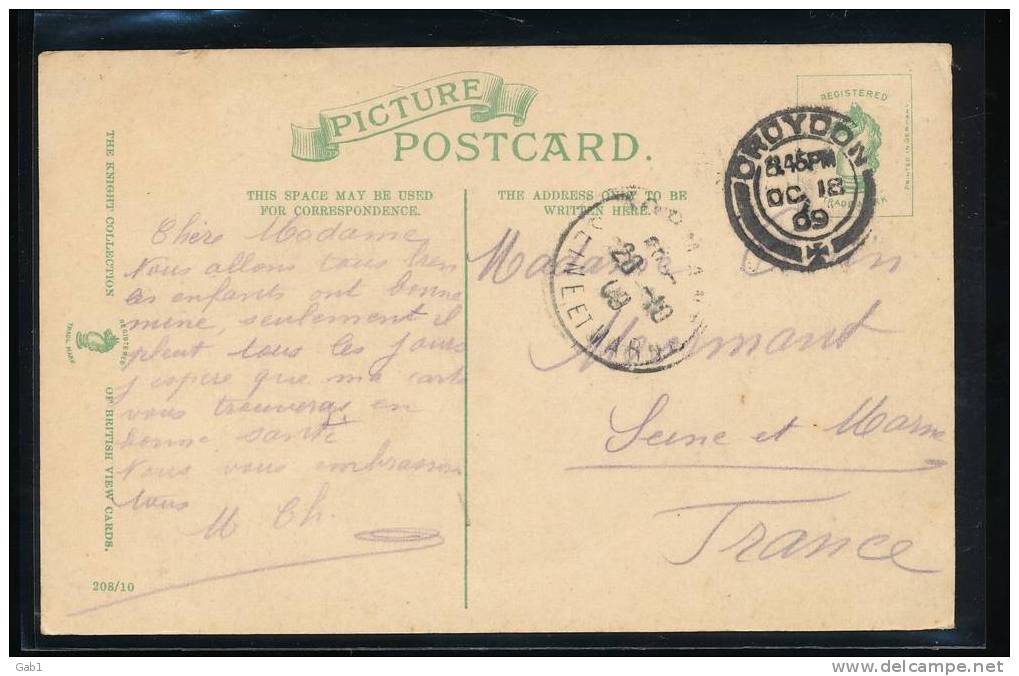 PICTURE
POSTCARD.
THIS SPACE MAY BE USED
FOR CORRESPONDENCE.
THE ADDRESS ONLY TO BE
WRITTEN HERE.
REGISTERED
PRINTED IN GERMANY
CROYDON
8.45PM
OC 18
09
20 -10
09
SEINE ET MARNE
Chère Madame
Nous allons tous bien
les enfants ont bonne
mine, seulement il
pleut tous les jours
j'espere que ma carte
vous trouveras en
bonne santé
Nous vous embrassons
tous
M Ch.
Madame
Seine et Marne
France
THE KNIGHT COLLECTION
REGISTERED
TRADE MARK
OF BRITISH VIEW CARDS.
208/10
Gab1
http://www.delcampe.net